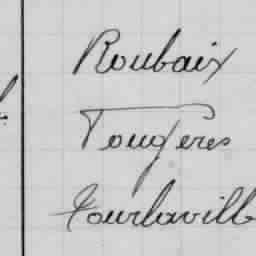 Roubaix
Fougères
Tourlaville